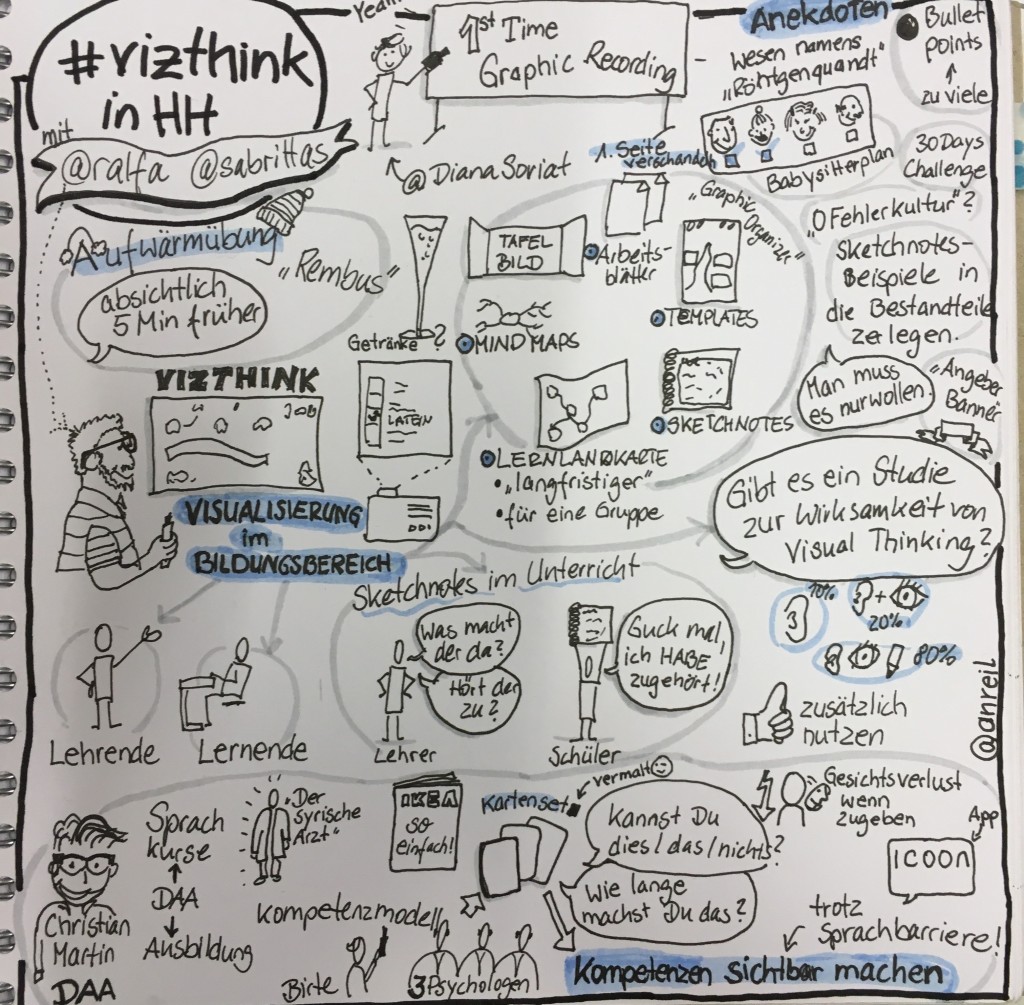 #vizthink
in HH
mit
@ralfa @sabrittas
Yeah!
1st Time
Graphic Recording
@DianaSoriat
Anekdoten
Wesen namens
„Röntgenquandt"
Babysitterplan
Bullet
points
zu viele
30 Days
Challenge
„0 Fehlerkultur"?
Sketchnotes-
Beispiele in
die Bestandteile
zerlegen.
Man muss
es nur wollen
„Angeber
Banner"
Aufwärmübung
„Rembus"
absichtlich
5 Min früher
Getränke?
TAFEL
BILD
1. Seite
verschandeln
Arbeits-
blätter
„Graphic
Organizer"
TEMPLATES
MIND MAPS
SKETCHNOTES
LERNLANDKARTE
• „langfristiger"
• für eine Gruppe
VIZTHINK
LATEIN
VISUALISIERUNG
im
BILDUNGSBEREICH
Gibt es ein Studie
zur Wirksamkeit von
Visual Thinking?
10%
+
20%
80%
zusätzlich
nutzen
@anreil
Sketchnotes im Unterricht
Was macht
der da?
Hört der
zu?
Guck mal,
ich HABE
zugehört!
Lehrende
Lernende
Lehrer
Schüler
Christian
Martin
DAA
Sprach
kurse
DAA
Ausbildung
„Der
syrische
Arzt"
IKEA
so
einfach!
Kartenset
vermalt
Kannst Du
dies/das/nichts?
Wie lange
machst Du das?
Gesichtsverlust
wenn
zugeben
App
ICOON
Kompetenzmodell
Birte
3 Psychologen
trotz
Sprachbarriere!
Kompetenzen sichtbar machen